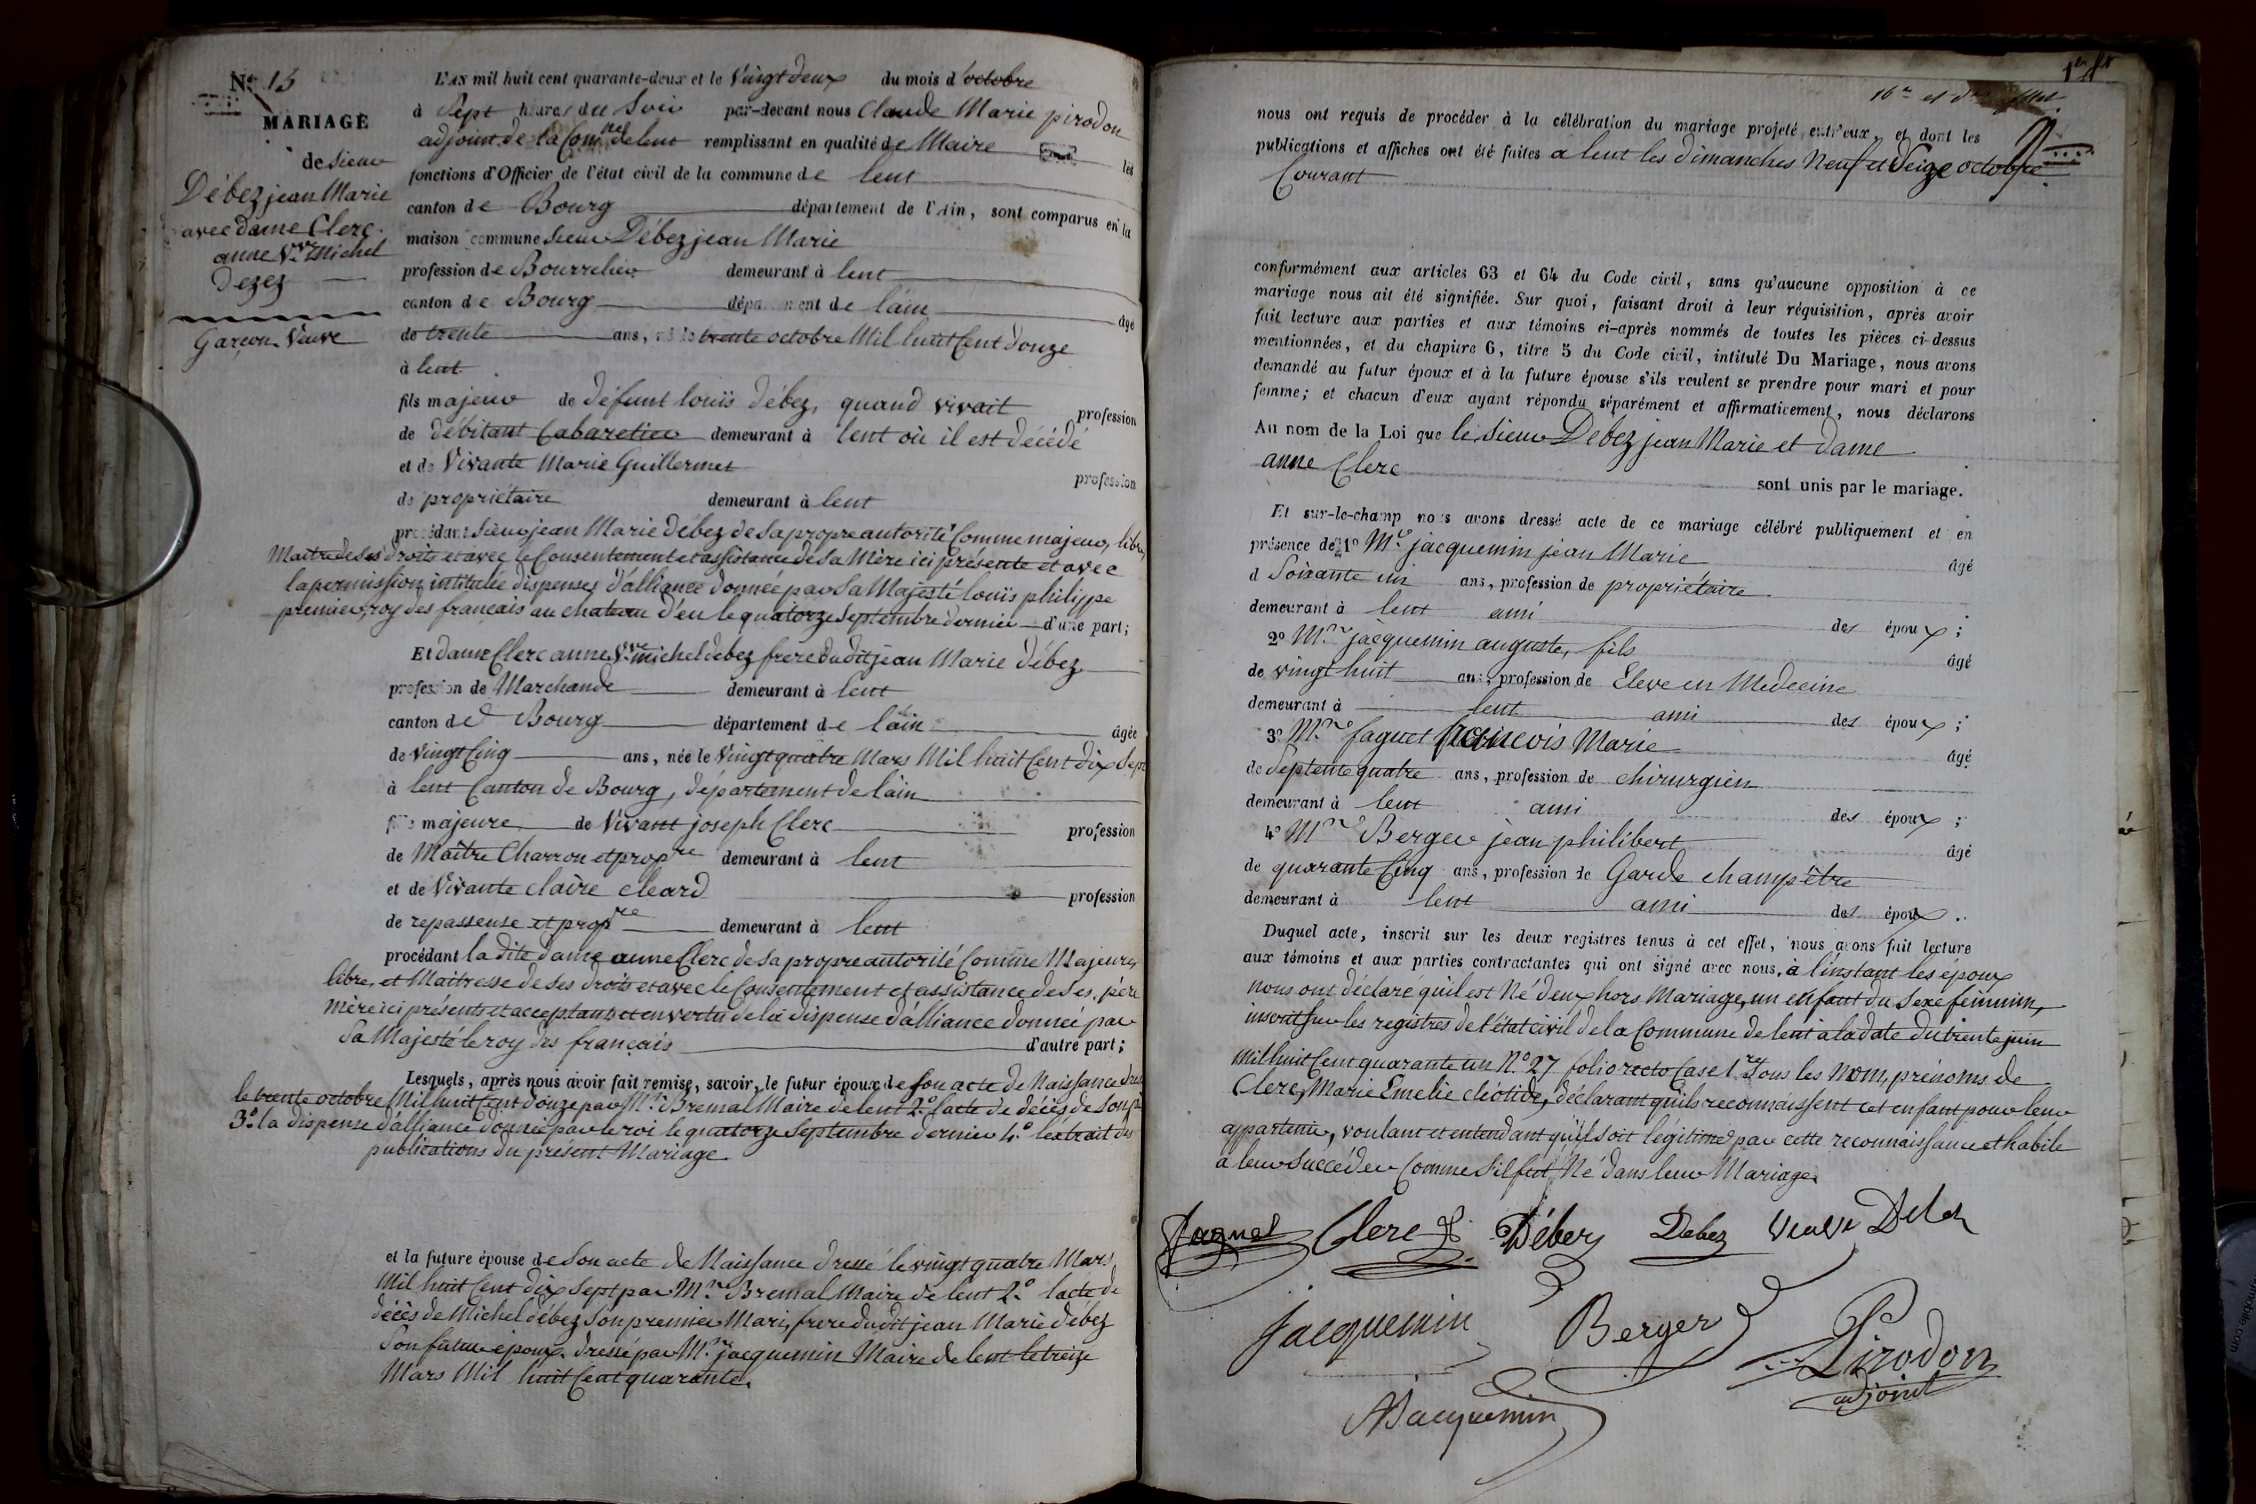 N.º 15
MARIAGE
de sieur
Débez jean Marie
avec dame Clerc
anne V.ve Michel
Dezez
Garçon. Veuve
L'AN mil huit cent quarante-deux et le Vingt deux du mois d'octobre
à Sept heures du Soir par-devant nous Claude Marie pirodon
adjoint de la Com.ne de lent remplissant en qualité de Maire les
fonctions d'Officier de l'état civil de la commune de lent
canton de Bourg département de l'Ain, sont comparus en la
maison commune sieur Débez jean Marie
profession de Bourrelier demeurant à lent
canton de Bourg département de l'ain âgé
de trente ans, né le trente octobre Mil huit Cent douze
à lent
fils majeur de défunt louis débez, quand vivait profession
de débitant Cabaretier demeurant à lent où il est décédé
et de Vivante Marie Guillermet profession
de propriétaire demeurant à lent
procédant sieur jean Marie débez de sa propre autorité Comme majeur, libre,
Maitre de ses droits et avec le Consentement et assistance de sa Mère ici présente et avec
la permission intitulée dispenses d'alliance donnée par Sa Majesté louis philippe
premier, roy des français au chateau d'eu le quatorze Septembre dernier d'une part;
Et dame Clerc anne V.ve michel debez frere du dit jean Marie débez
profession de Marchande demeurant à lent
canton de Bourg département de l'ain âgée
de Vingt Cinq ans, née le Vingt quatre Mars Mil huit Cent dix Sept
à lent Canton de Bourg, département de l'ain
fille majeure de Vivant joseph Clerc profession
de Maître Charron et prop.re demeurant à lent
et de Vivante claire cleard profession
de repasseuse et prop.re demeurant à lent
procédant la dite dame anne Clerc de sa propre autorité Comme Majeure,
libre, et Maitresse de ses droits et avec le Consentement et assistance de ses père
mère ici présents et acceptants et en vertu de la dispense d'alliance donnée par
Sa Majesté le roy des français d'autre part;
Lesquels, après nous avoir fait remise, savoir, le futur époux de son acte de Naissance
le trente octobre Mil huit Cent douze par M.r Bremal Maire de lent 2.º l'acte de décès de son
3.º la dispense d'alliance donnée par le roi le quatorze Septembre dernier 4.º l'extrait des
publications du présent Mariage
et la future épouse de son acte de Naissance dressé le vingt quatre Mars
Mil huit Cent dix Sept par M.r Bremal Maire de lent 2.º l'acte de
décès de Michel débez son premier Mari, frere du dit jean Marie débez
son futur époux. dressé par M.r jacquemin Maire de lent le treize
Mars Mil huit Cent quarante.
nous ont requis de procéder à la célébration du mariage projeté entr'eux, et dont les
publications et affiches ont été faites a lent les dimanches Neuf et Seize octobre
Courant
conformément aux articles 63 et 64 du Code civil, sans qu'aucune opposition à ce
mariage nous ait été signifiée. Sur quoi, faisant droit à leur réquisition, après avoir
fait lecture aux parties et aux témoins ci-après nommés de toutes les pièces ci-dessus
mentionnées, et du chapitre 6, titre 5 du Code civil, intitulé Du Mariage, nous avons
demandé au futur époux et à la future épouse s'ils veulent se prendre pour mari et pour
femme; et chacun d'eux ayant répondu séparément et affirmativement, nous déclarons
Au nom de la Loi que le sieur Debez jean Marie et dame
anne Clerc
sont unis par le mariage.
Et sur-le-champ nous avons dressé acte de ce mariage célébré publiquement et en
présence de 1º M.r jacquemin jean Marie âgé
d Soixante un ans, profession de propriétaire
demeurant à lent ami des époux;
2º M.r jacquemin auguste, fils âgé
de vingt huit ans, profession de Eleve en Medecine
demeurant à lent ami des époux;
3º M.r faguet françois Marie âgé
de Septente quatre ans, profession de chirurgien
demeurant à lent ami des époux;
4º M.r Berger jean philibert âgé
de quarante Cinq ans, profession de Garde champêtre
demeurant à lent ami des époux.
Duquel acte, inscrit sur les deux registres tenus à cet effet, nous avons fait lecture
aux témoins et aux parties contractantes qui ont signé avec nous. à l'instant les époux
nous ont déclaré qu'il est Né d'eux hors Mariage, un enfant du Sexe féminin,
inscrit sur les registres de l'état civil de la Commune de lent à la date du trente juin
mil huit Cent quarante un N.º 27 folio recto Case 1.re Sous les Nom, prénoms de
Clerc, Marie Emelie cléotide, déclarant qu'ils reconnaissent cet enfant pour leur
appartenir, voulant et entendant qu'il soit légitimé par cette reconnaissance et habile
à leur Succéder Comme s'il fut Né dans leur Mariage.
Faguet Clerc Débez Debez Veuve Debez
Jacquemin Berger Pirodon
adjoint
A Jacquemin